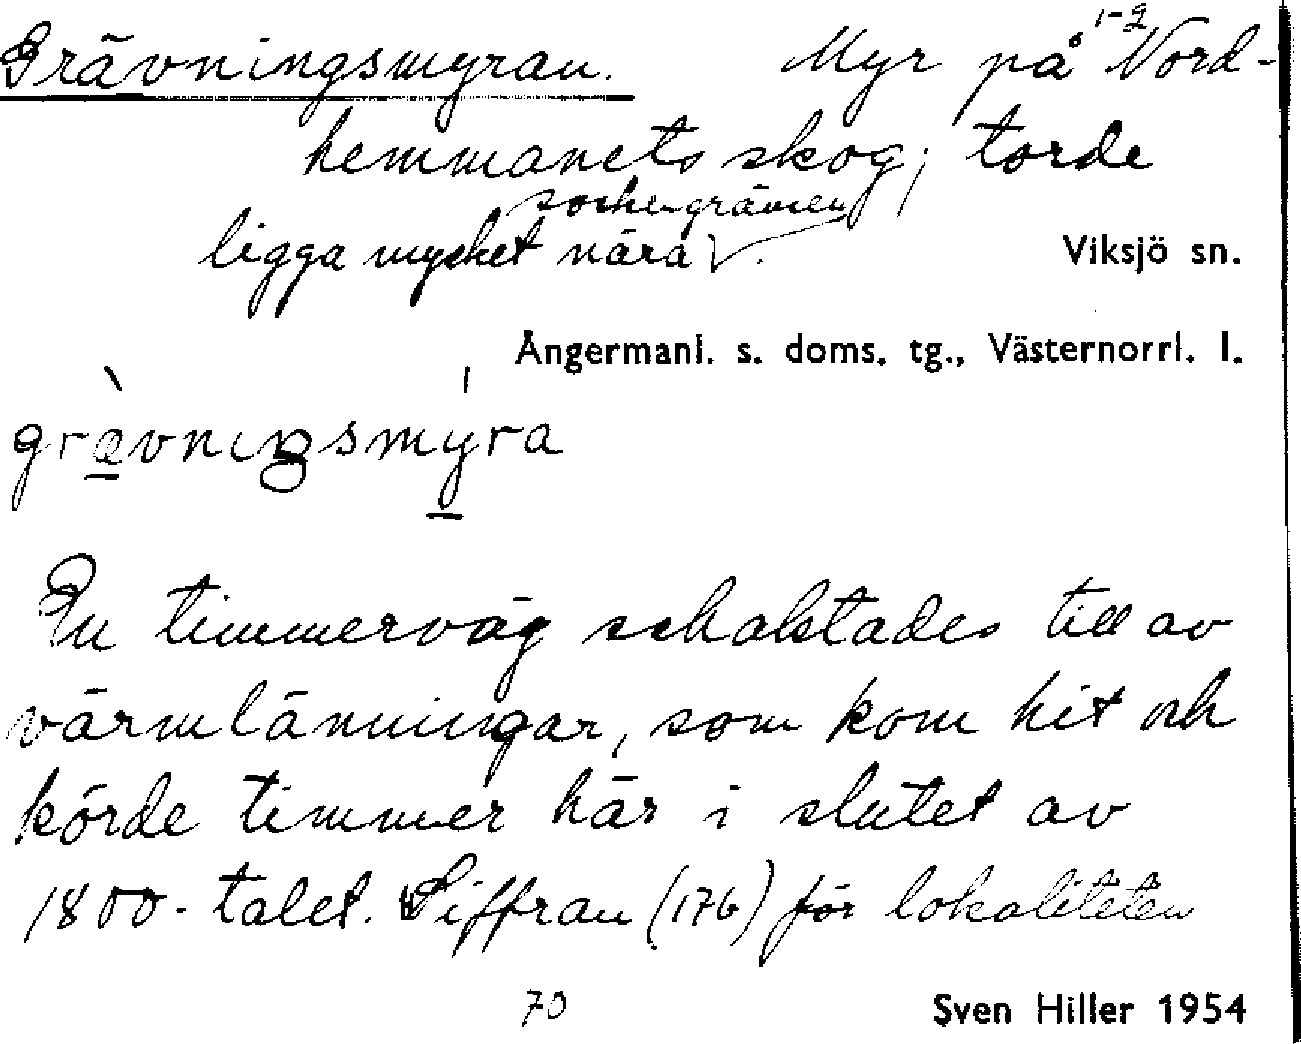 Grävningsmyran. Myr på 1-2 Nord-
hemmanets skog; torde
ligga mycket nära sockengränsen.
Viksjö sn.
Ångermanl. s. doms. tg., Västernorrl. l.
grævniŋsmyra
En timmerväg schaktades till av
värmlänningar, som kom hit och
körde timmer här i slutet av
1800-talet. Siffran (176) för lokaliteten
70
Sven Hiller 1954